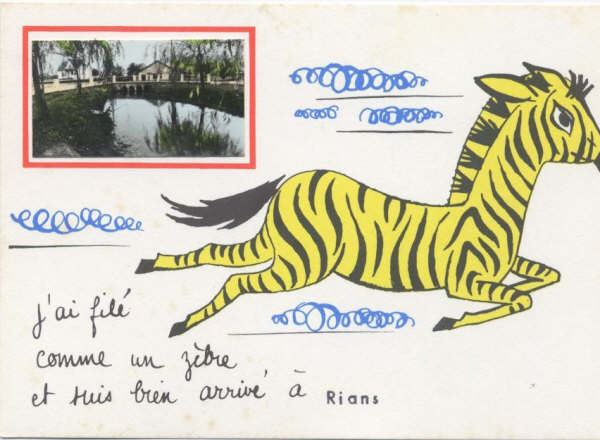 j'ai filé
comme un zèbre
et suis bien arrivé à Rians